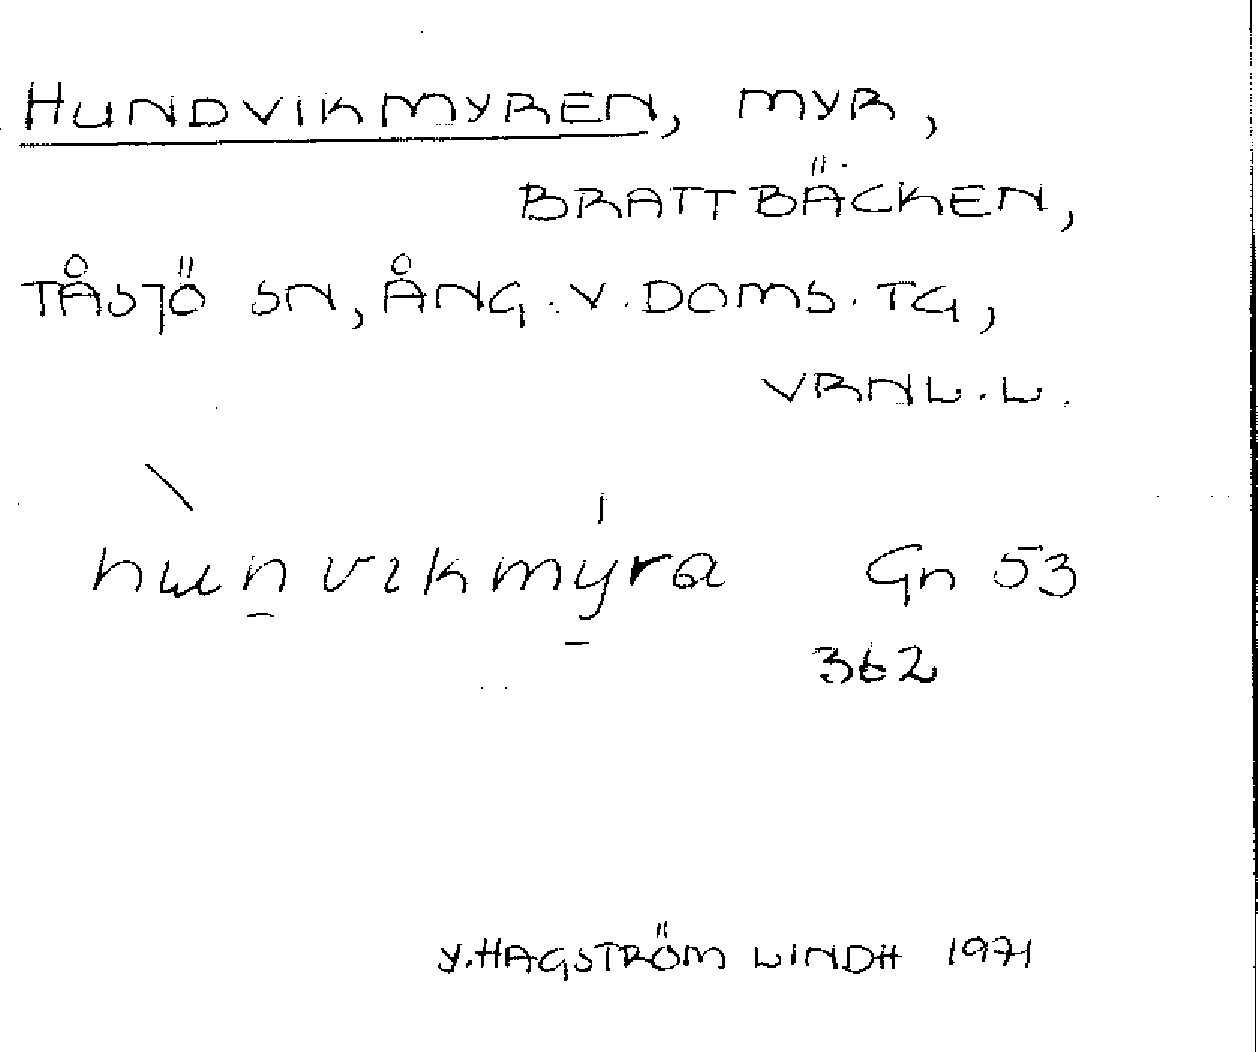 HUNDVIKMYREN, MYR,
BRATTBÄCKEN,
TÅSJÖ SN, ÅNG. V. DOMS. TG,
VRNL. L.
hun̠vikmy̠ra Gn 53
362
Y. HAGSTRÖM LINDH 1971